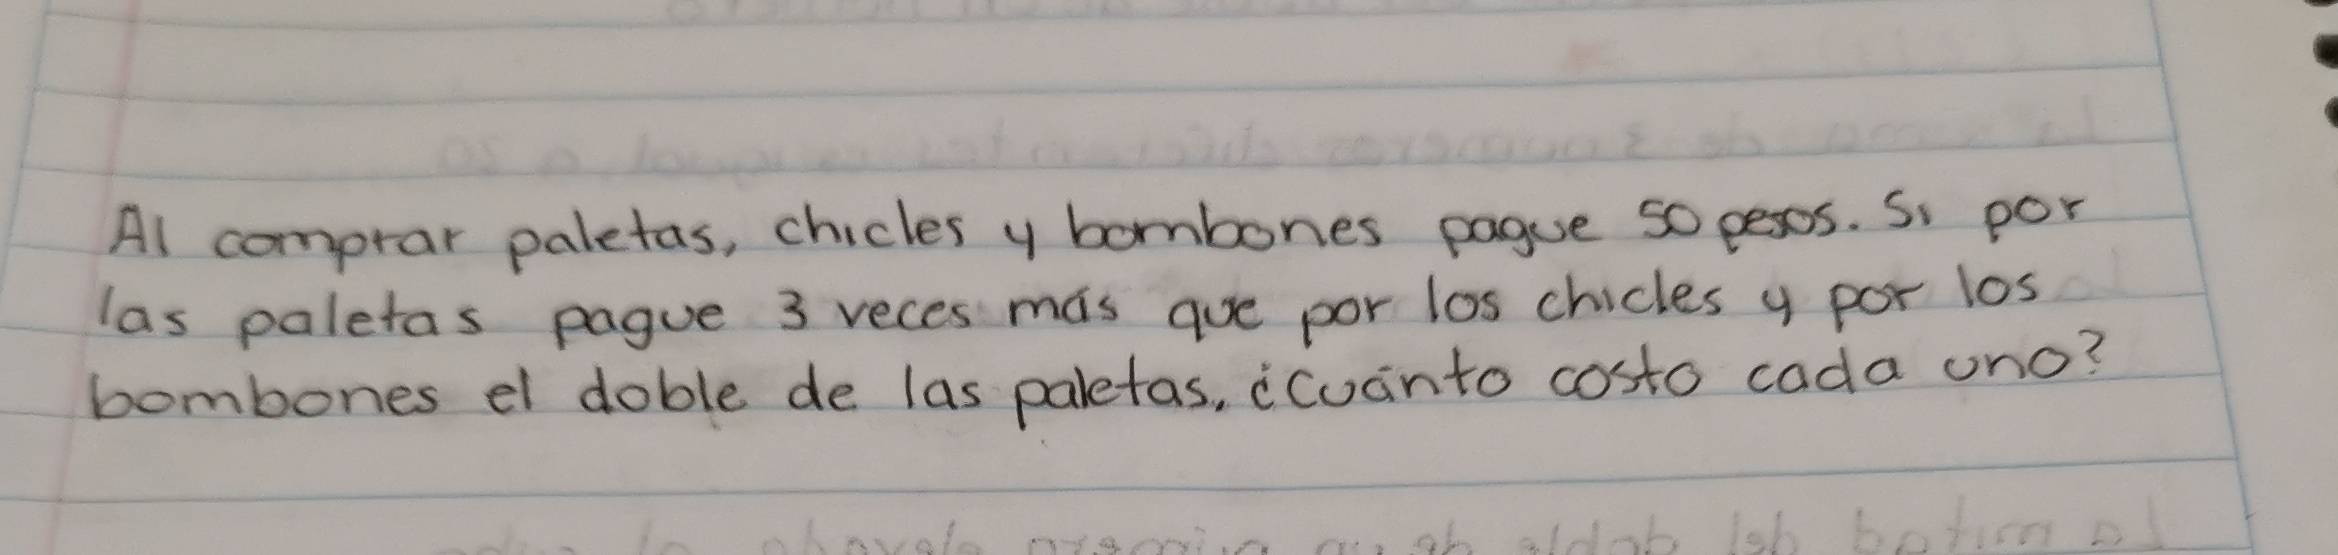 Al comprar paletas, chicles y bombones pague 50 pesos. Si por
las paletas pague 3 veces más que por los chicles y por los
bombones el doble de las paletas, ¿Cuánto costo cada uno?